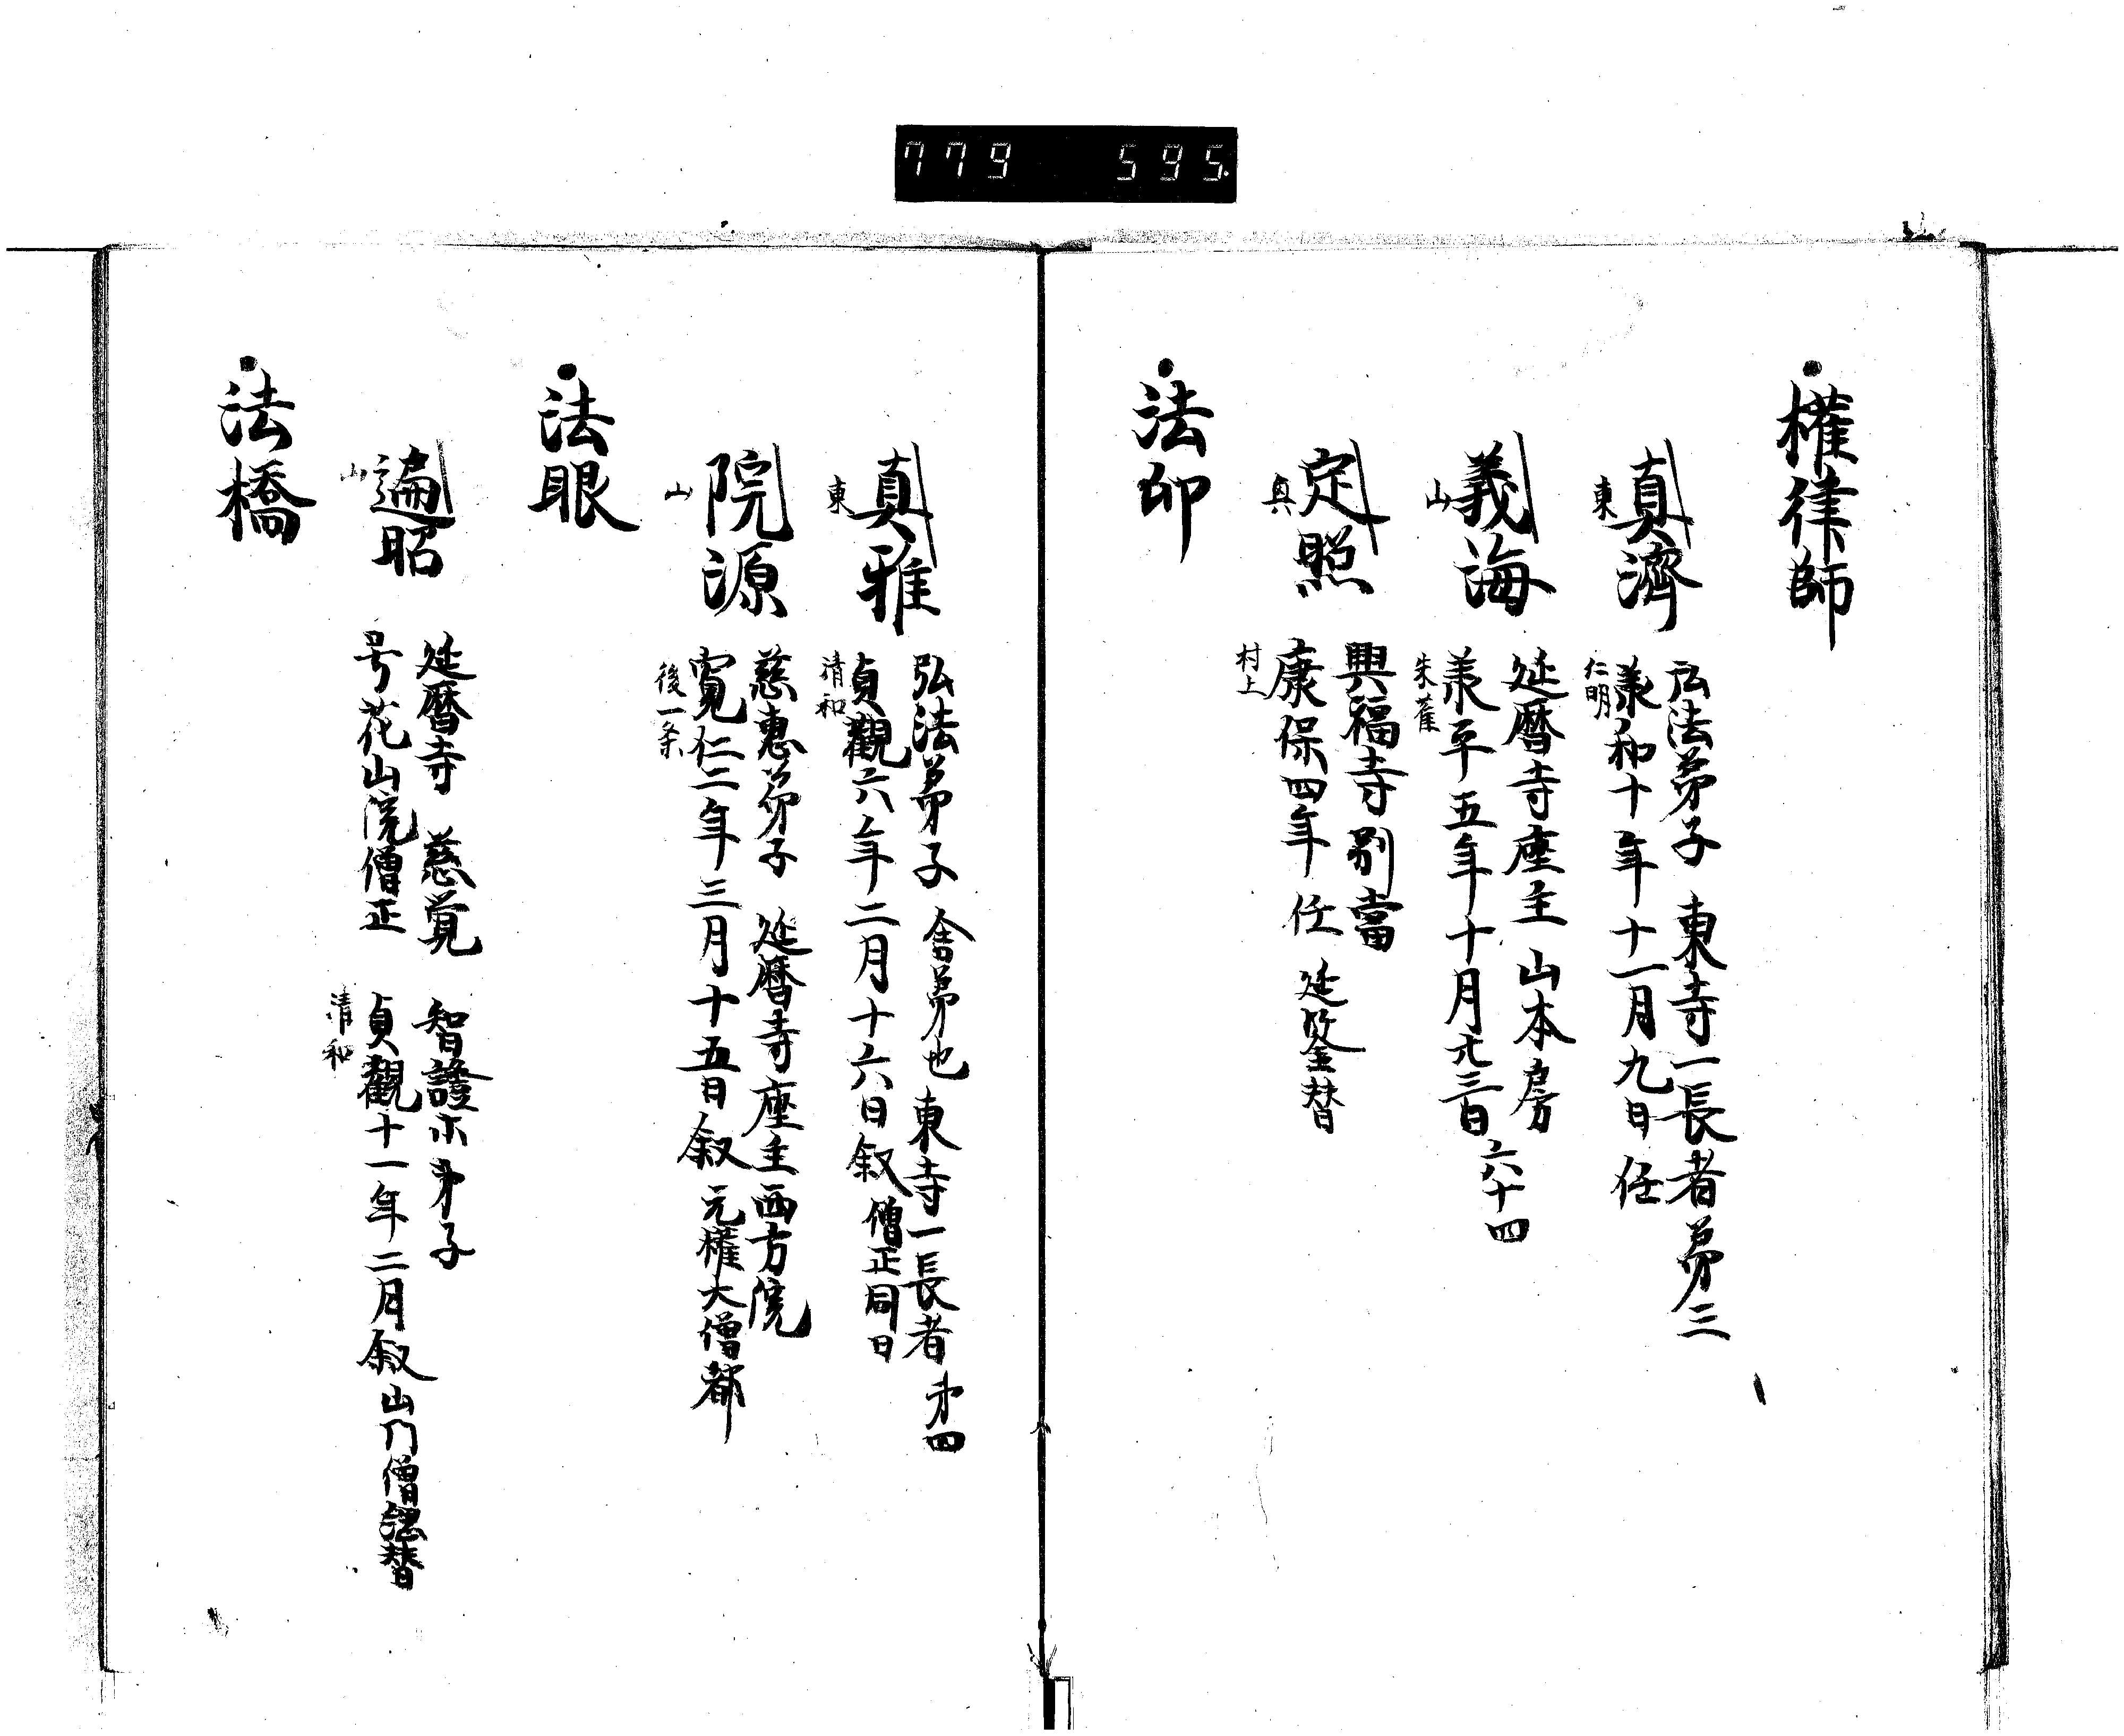 779 595.
権律師
真濟
東
弘法弟子 東寺一長者第三
承和十年十一月九日任
仁明
義海
山
延暦寺座主 山本房
承平五年十月廿三日 六十四
朱雀
定照
興福寺別當
康保四年任 延鏨替
村上
法印
真雅
東
弘法弟子 舎弟也 東寺一長者 第四
貞觀六年二月十六日叙 僧正同日
清和
院源
山
慈惠弟子 延暦寺座主 西方院
寛仁二年三月十五日叙 元権大僧都
後一条
法眼
遍昭
山
延暦寺 慈覚 智證木弟子
号花山院僧正 貞觀十一年二月叙 山門僧綱替
清和
法橋